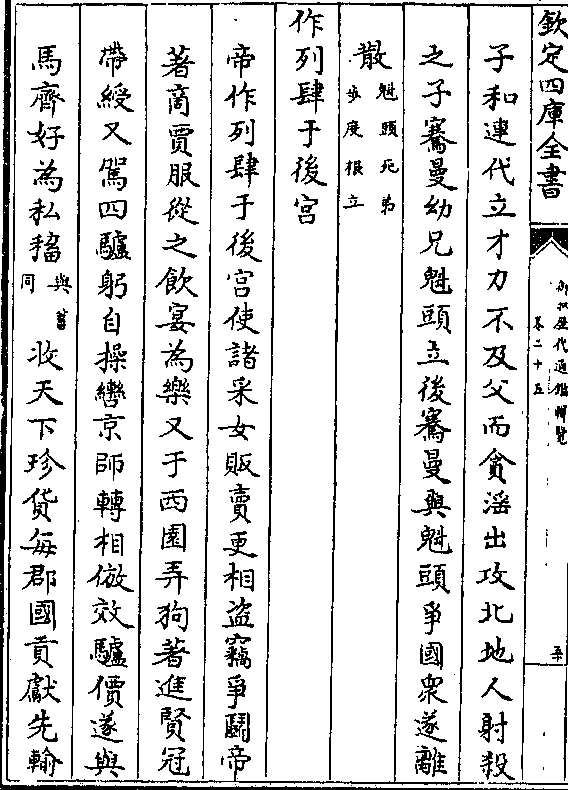 欽定四庫全書
御批歷代通鑑輯覽
卷二十五
子和連代立才力不及父而貪淫出攻北地人射殺
之子騫曼幼兄魁頭立後騫曼與魁頭爭國衆遂離
散魁頭死弟步度根立
作列肆于後宮
帝作列肆于後宮使諸采女販賣更相盜竊爭鬭帝
著商賈服從之飲宴為樂又于西園弄狗著進賢冠
帶綬又駕四驢躬自操轡京師轉相倣效驢價遂與
馬齊好為私稸與蓄同收天下珍貨每郡國貢獻先輸